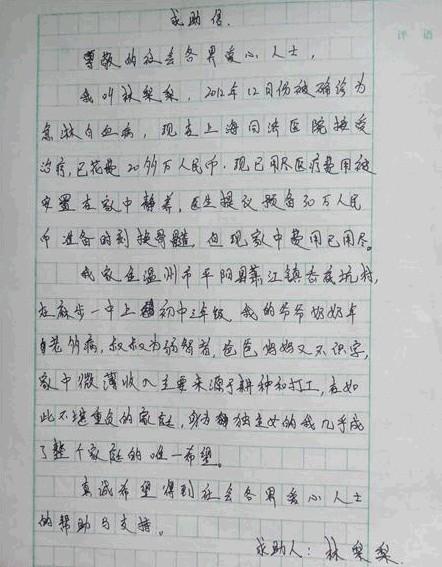 求助信.
尊敬的社会各界爱心人士，
我叫林梨梨，2012年12月份被确诊为
急淋白血病，现在上海同济医院接受
治疗，已花费20多万人民币.现已用尽医疗费用被
安置在家中静养，医生提议预备30万人民
币准备时刻换骨髓，但现家中费用已用尽。
我家住温州市平阳县萧江镇岙底坑村，
在麻步一中上初中三年级 我的爷爷奶奶年
老多病，叔叔为弱智者，爸爸妈妈又不识字，
家中微薄收入主要来源于耕种和打工，在如
此不堪重负的家庭，身为独生女的我几乎成
了整个家庭的唯一希望。
真诚希望得到社会各界爱心人士
的帮助与支持。
求助人：林梨梨.